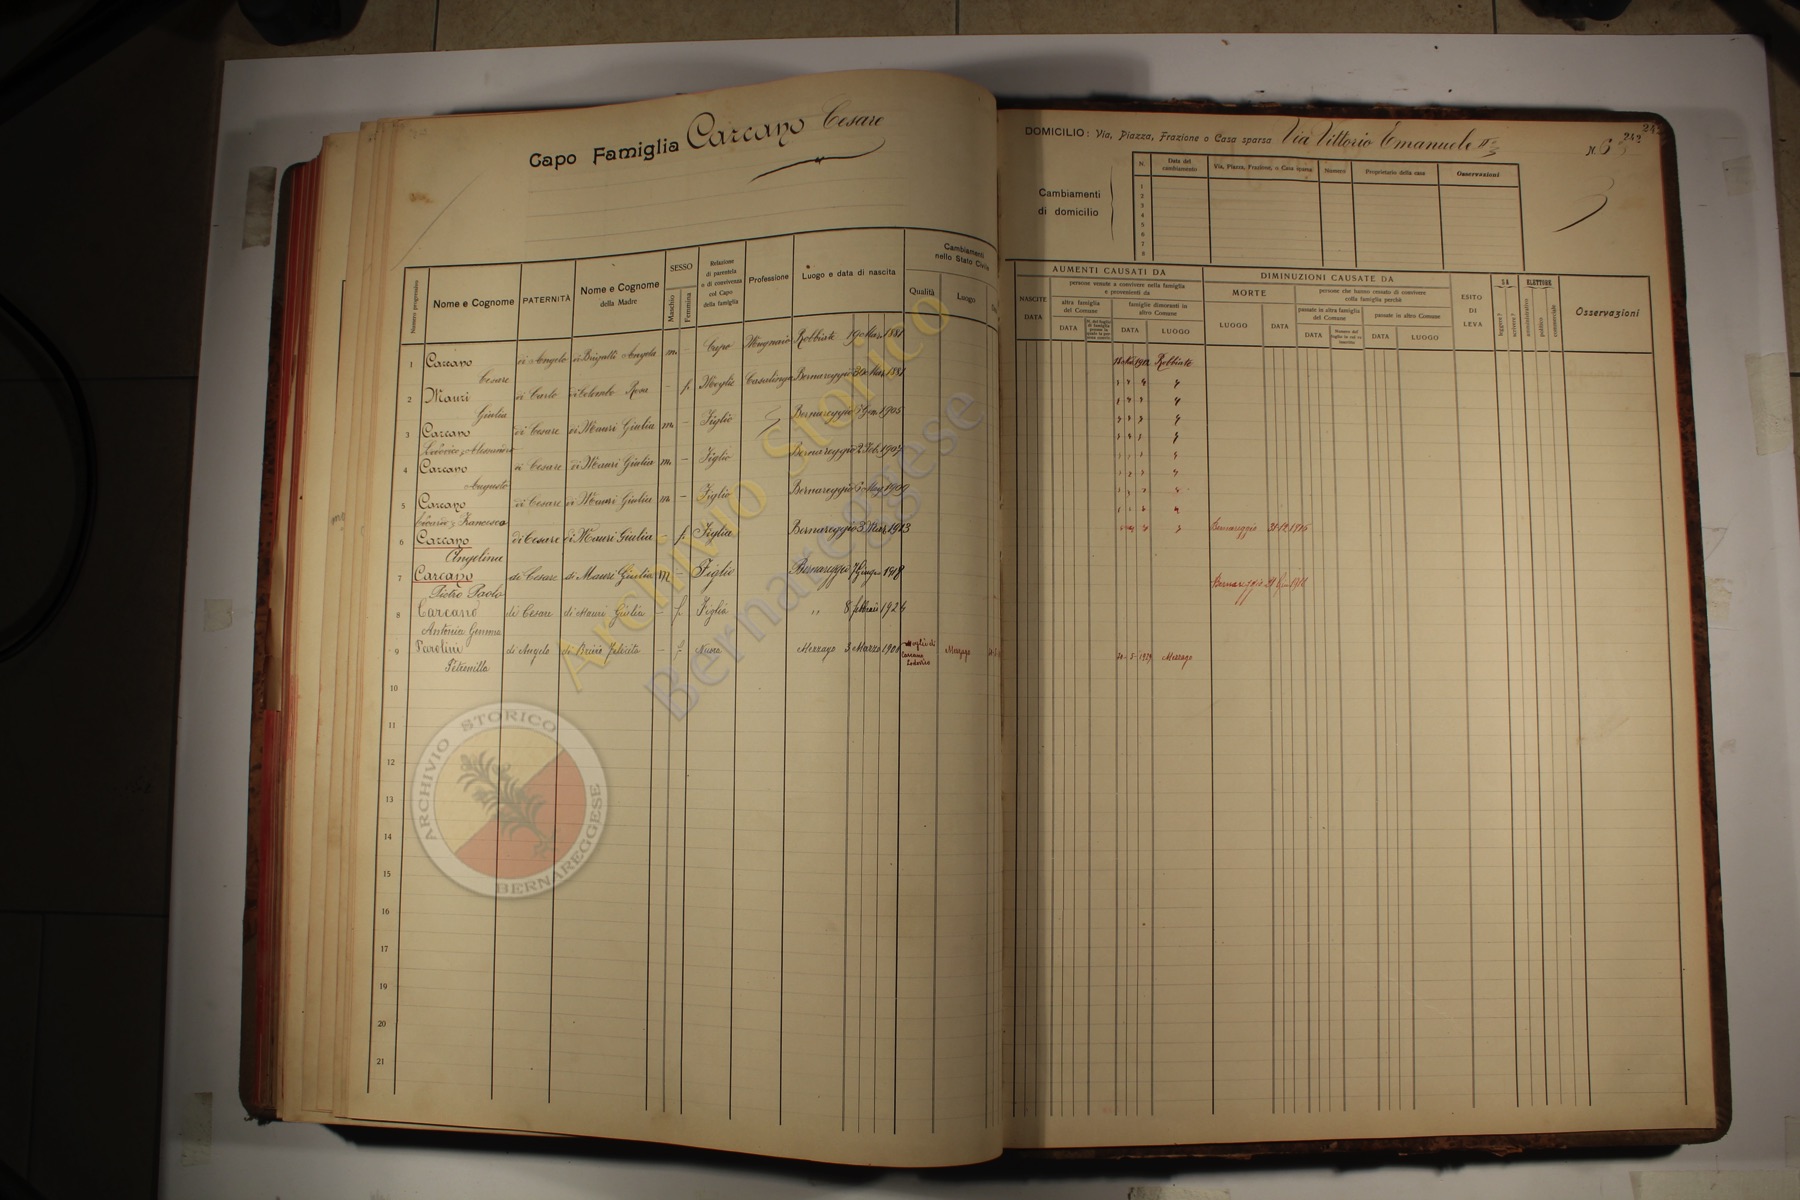 Capo Famiglia Carcano Cesare
DOMICILIO: Via, Piazza, Frazione o Casa sparsa Via Vittorio Emanuele II°
N. 63
242
Cambiamenti di domicilio
N. Data del cambiamento Via, Piazza, Frazione, o Casa sparsa Numero Proprietario della casa Osservazioni
1
2
3
4
5
6
7
8
Numero progressivo Nome e Cognome PATERNITÀ Nome e Cognome della Madre SESSO Maschio Femmina Relazione di parentela o di convivenza col Capo della famiglia Professione Luogo e data di nascita Cambiamenti nello Stato Civile Qualità Luogo
NASCITE DATA AUMENTI CAUSATI DA persone venute a convivere nella famiglia e provenienti da altra famiglia del Comune DATA famiglie dimoranti in altro Comune DATA LUOGO
DIMINUZIONI CAUSATE DA MORTE LUOGO DATA persone che hanno cessato di convivere colla famiglia perchè passate in altra famiglia del Comune DATA passate in altro Comune DATA LUOGO
ESITO DI LEVA SA leggere? scrivere? ELETTORE amministrativo politico commerciale Osservazioni
1 Carcano Cesare di Angelo di Brigatti Angela m. - Capo Mugnaio Robbiate 19 Mar. 1881 1912 Robbiate
2 Mauri Giulia di Carlo di Colombo Rosa - f. Moglie Casalinga Bernareggio 30 Mar. 1881 " " " "
3 Carcano Lodovico, Alessandro di Cesare di Mauri Giulia m. - Figlio Bernareggio 5 Gen. 1905 " " " "
4 Carcano Augusto di Cesare di Mauri Giulia m. - Figlio Bernareggio 2 Feb. 1907 " " " "
5 Carcano Francesco di Cesare di Mauri Giulia m. - Figlio Bernareggio 6 Mag. 1909 " " " "
6 Carcano Angelina di Cesare di Mauri Giulia - f. Figlia Bernareggio 3 Mar. 1913 Bernareggio
7 Carcano Pietro Paolo di Cesare di Mauri Giulia M - Figlio Bernareggio 1918 Bernareggio
8 Carcano Antonia Gemma di Cesare di Mauri Giulia - f. Figlia " 8 febbraio 1924
9 Parolini Petronilla di Angelo di Felicita - f. Nuora Mezzago 3 Marzo 1901 Moglie di Carcano Lodovico Mezzago 20-5-1929 Mezzago
10
11
12
13
14
15
16
17
18
19
20
21
Archivio Storico
Bernareggese
ARCHIVIO STORICO
BERNAREGGESE